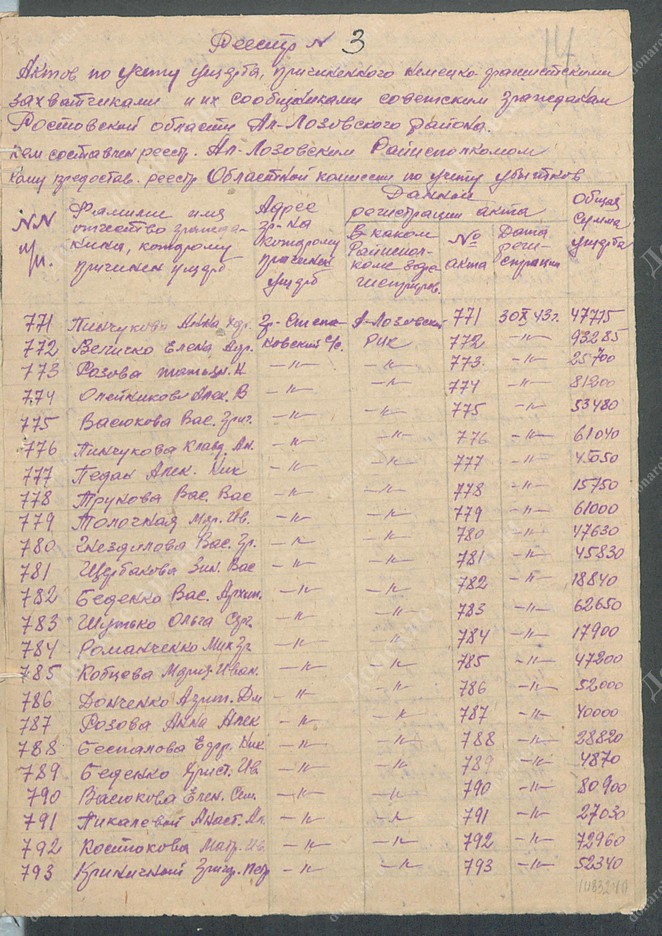 Реестр № 3
14
Актов по учету ущерба, причиненного немецко-фашистскими
захватчиками и их сообщниками советским гражданам
Ростовской области Ал-Лозовского района.
кем составлен реестр. Ал-Лозовским Райисполкомом
кому предостав. реестр Областной комиссии по учету убытков
NN п/п. Фамилия имя отчество гражданина, которому причинен ущерб Адрес гр-на которому причинен ущерб Данные регистрации акта Общая сумма ущерба
В каком Райисполкоме зарегистриров. №№ акта Дата регистрации
771 Пинчукова Анна 771 30 43г. 47775
772 Величко Елена РИК 772 -"- 93285
773 Розова Н -"- -"- 773 -"- 25700
774 Олейников Алек. В -"- -"- 774 -"- 81200
775 Васюкова Вас. Григ. -"- -"- 775 -"- 53480
776 Пинчукова Клавд. Ан. -"- -"- 776 -"- 61040
777 Педан Алек. Ник -"- -"- 777 -"- 45050
778 Трунова Вас. Вас -"- -"- 778 -"- 15750
779 Толочная Мар. Ив. -"- -"- 779 -"- 61000
780 Гнездилова Вас. Гр. -"- -"- 780 -"- 47630
781 Щербакова Зин. Вас -"- -"- 781 -"- 45830
782 Беденко Вас. -"- -"- 782 -"- 18840
783 Шутько Ольга -"- -"- 783 -"- 62650
784 Романченко -"- -"- 784 -"- 17900
785 Кобцева Мария Иван. -"- -"- 785 -"- 47200
786 Донченко -"- -"- 786 -"- 52000
787 Розова Анна Алек -"- -"- 787 -"- 40000
788 Беспалова Ник -"- -"- 788 -"- 28820
789 Беденко Христ. Ив. -"- -"- 789 -"- 4870
790 Васюкова Елен. -"- -"- 790 -"- 80900
791 Пикалевой Анаст. -"- -"- 791 -"- 27030
792 Костокова Матр. Ив -"- -"- 792 -"- 72960
793 Криничной Григ. Петр -"- -"- 793 -"- 52340